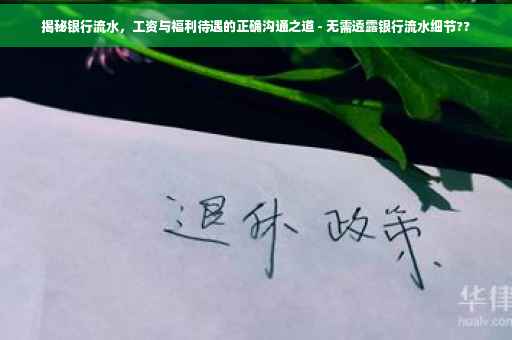 揭秘银行流水，工资与福利待遇的正确沟通之道 - 无需透露银行流水细节??
退休 政策
华律
hualv.com